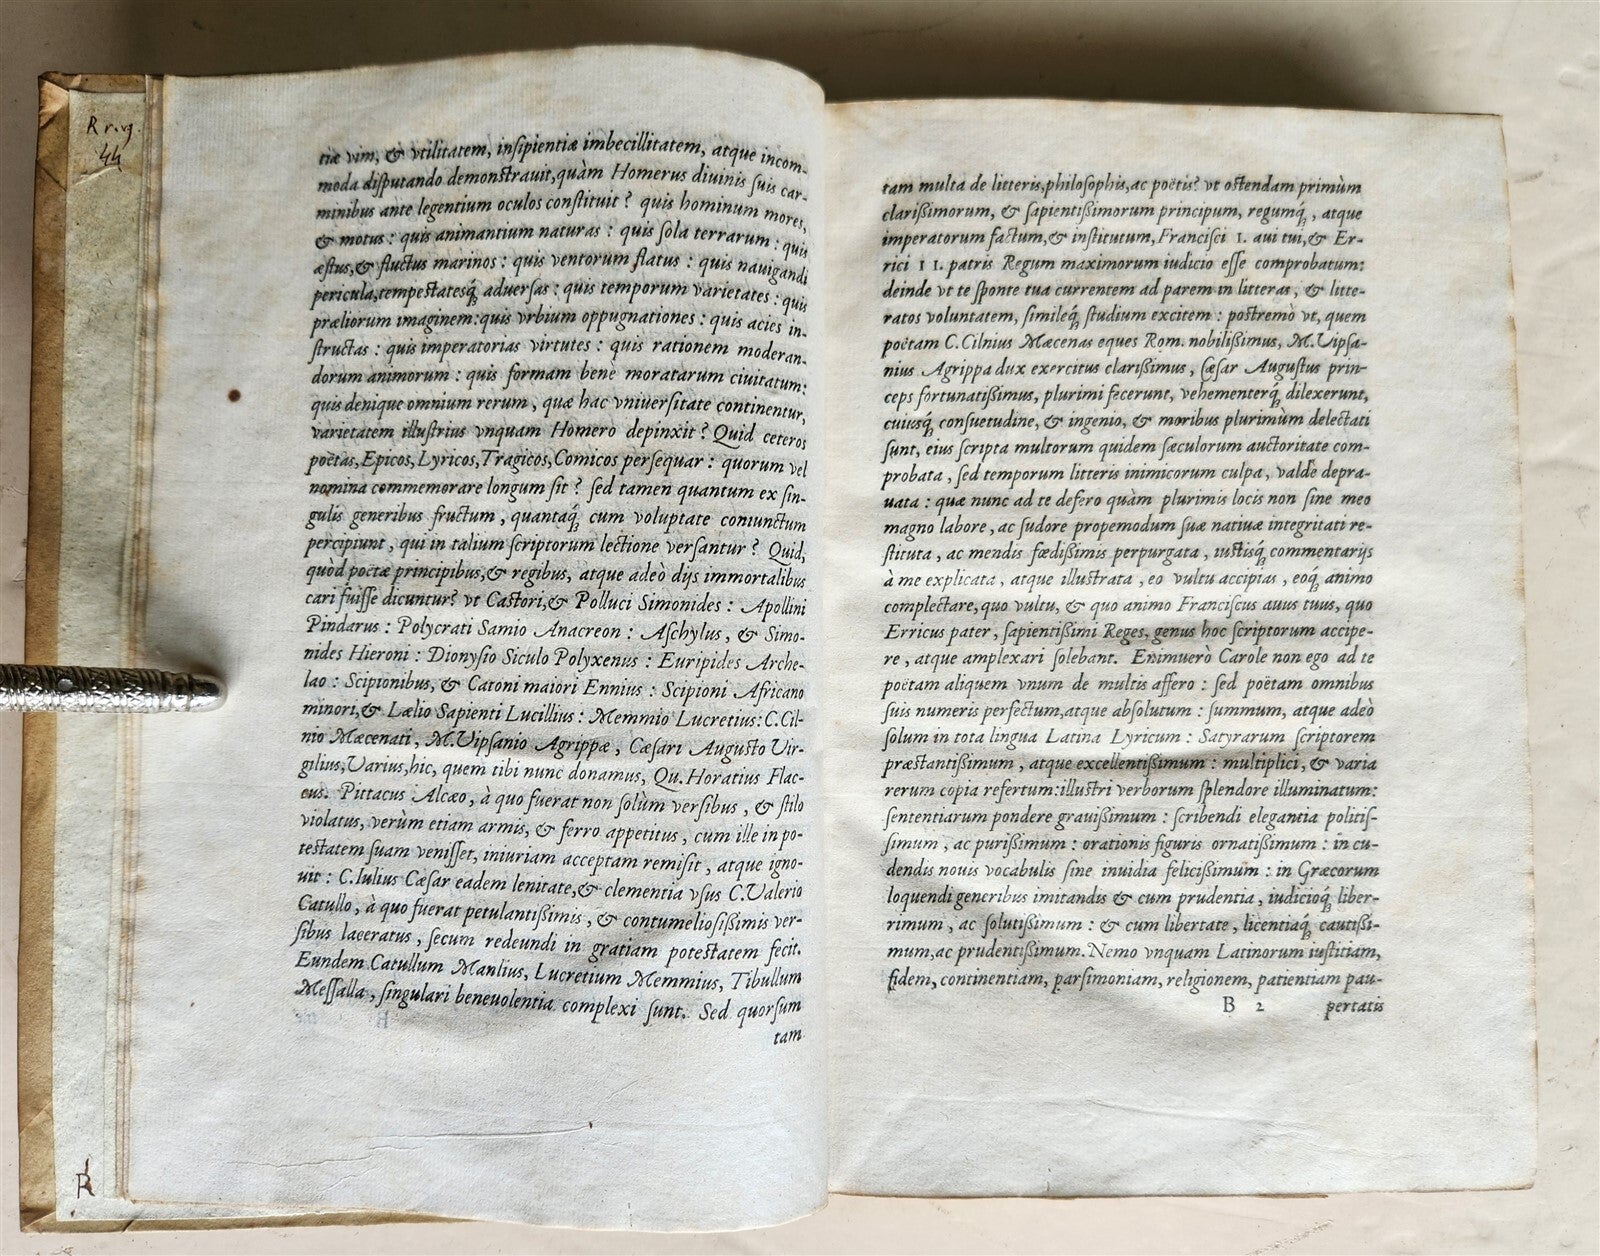 R r.vj.
44
tiæ vim, & vtilitatem, insipientiæ imbecillitatem, atque incom-
moda disputando demonstrauit, quàm Homerus diuinis suis car-
minibus ante legentium oculos constituit? quis hominum mores,
& motus: quis animantium naturas: quis sola terrarum: quis
æstus, & fluctus marinos: quis ventorum flatus: quis nauigandi
pericula, tempestatesq́; aduersas: quis temporum varietates: quis
præliorum imaginem: quis vrbium oppugnationes: quis acies in-
structas: quis imperatorias virtutes: quis rationem moderan-
dorum animorum: quis formam bene moratarum ciuitatum:
quis denique omnium rerum, quæ hac vniuersitate continentur,
varietatem illustrius vnquam Homero depinxit? Quid ceteros
poëtas, Epicos, Lyricos, Tragicos, Comicos persequar: quorum vel
nomina commemorare longum sit? sed tamen quantum ex sin-
gulis generibus fructum, quantaq́; cum voluptate coniunctum
percipiunt, qui in talium scriptorum lectione versantur? Quid,
quòd poëtæ principibus, & regibus, atque adeò dijs immortalibus
cari fuisse dicuntur? vt Castori, & Polluci Simonides: Apollini
Pindarus: Polycrati Samio Anacreon: Aschylus, & Simo-
nides Hieroni: Dionysio Siculo Polyxenus: Euripides Arche-
lao: Scipionibus, & Catoni maiori Ennius: Scipioni Africano
minori, & Lælio Sapienti Lucillius: Memmio Lucretius: C. Cil-
nio Mæcenati, M. Vipsanio Agrippæ, Cæsari Augusto Vir-
gilius, Varius, hic, quem tibi nunc donamus, Qu. Horatius Flac-
cus. Pittacus Alcæo, à quo fuerat non solùm versibus, & stilo
violatus, verùm etiam armis, & ferro appetitus, cum ille in po-
testatem suam venisset, iniuriam acceptam remisit, atque igno-
uit: C. Iulius Cæsar eadem lenitate, & clementia vsus C. Valerio
Catullo, à quo fuerat petulantißimis, & contumeliosißimis ver-
sibus laceratus, secum redeundi in gratiam potestatem fecit.
Eundem Catullum Manlius, Lucretium Memmius, Tibullum
Messalla, singulari beneuolentia complexi sunt. Sed quorsum
tam
R
tam multa de litteris, philosophis, ac poëtis? vt ostendam primùm
clarißimorum, & sapientißimorum principum, regumq́;, atque
imperatorum factum, & institutum, Francisci I. aui tui, & Er-
rici II. patris Regum maximorum iudicio esse comprobatum:
deinde vt te sponte tua currentem ad parem in litteras, & litte-
ratos voluntatem, simileq́; studium excitem: postremò vt, quem
poëtam C. Cilnius Mæcenas eques Rom. nobilißimus, M. Vipsa-
nius Agrippa dux exercitus clarißimus, Cæsar Augustus prin-
ceps fortunatißimus, plurimi fecerunt, vehementerq́; dilexerunt,
cuiusq́; consuetudine, & ingenio, & moribus plurimùm delectati
sunt, eius scripta multorum quidem sæculorum auctoritate com-
probata, sed temporum litteris inimicorum culpa, valde depra-
uata: quæ nunc ad te defero quàm plurimis locis non sine meo
magno labore, ac sudore propemodum suæ natiuæ integritati re-
stituta, ac mendis fœdißimis perpurgata, iustisq́; commentarijs
à me explicata, atque illustrata, eo vultu accipias, eoq́; animo
complectare, quo vultu, & quo animo Franciscus auus tuus, quo
Erricus pater, sapientißimi Reges, genus hoc scriptorum accipe-
re, atque amplexari solebant. Enimuerò Carole non ego ad te
poëtam aliquem vnum de multis affero: sed poëtam omnibus
suis numeris perfectum, atque absolutum: summum, atque adeò
solum in tota lingua Latina Lyricum: Satyrarum scriptorem
præstantißimum, atque excellentißimum: multiplici, & varia
rerum copia refertum: illustri verborum splendore illuminatum:
sententiarum pondere grauißimum: scribendi elegantia politis-
simum, ac purißimum: orationis figuris ornatißimum: in cu-
dendis nouis vocabulis sine inuidia felicißimum: in Græcorum
loquendi generibus imitandis & cum prudentia, iudicioq́; liber-
rimum, ac solutißimum: & cum libertate, licentiaq́; cautißi-
mum, ac prudentißimum. Nemo vnquam Latinorum iustitiam,
fidem, continentiam, parsimoniam, religionem, patientiam pau-
B 2 pertatis